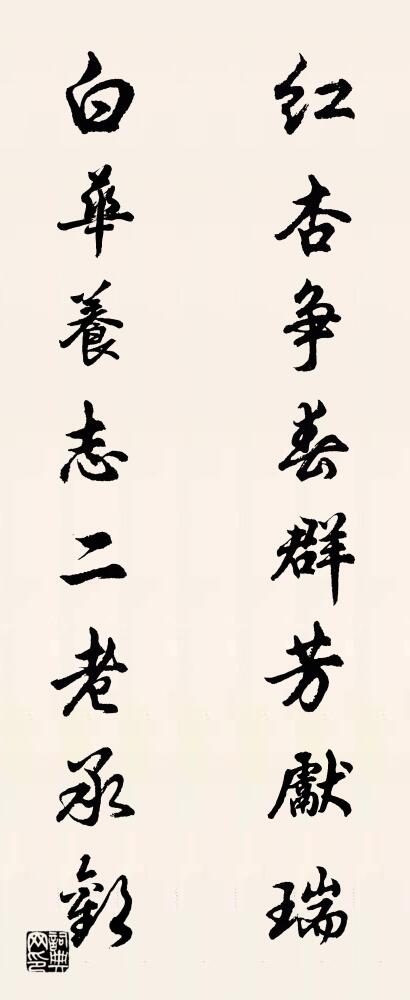 红杏争春群芳献瑞
白华养志二老承欢
词典网印